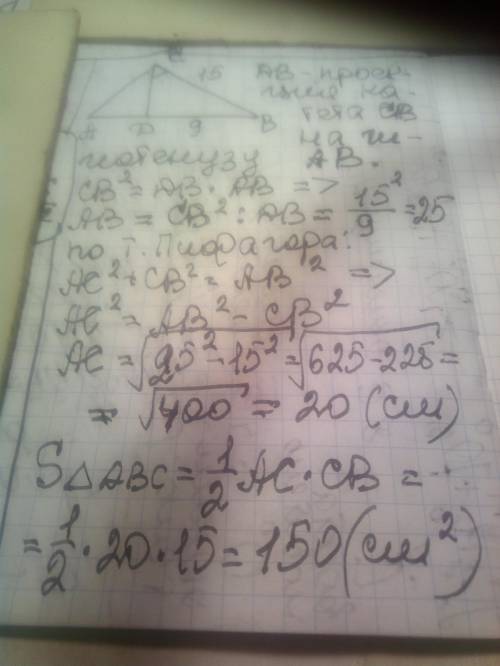 C
15 DB - проек-
ция ка-
тета CB
A D 9 B на ги-
потенузу AB.
CB² = DB · AB =>
AB = CB² : DB = 15²/9 = 25
по Т. Пифагора:
AC² + CB² = AB² =>
AC² = AB² - CB²
AC = √25² - 15² = √625 - 225 =
= √400 = 20 (см)
S△ABC = 1/2 AC · CB =
= 1/2 · 20 · 15 = 150 (см²)